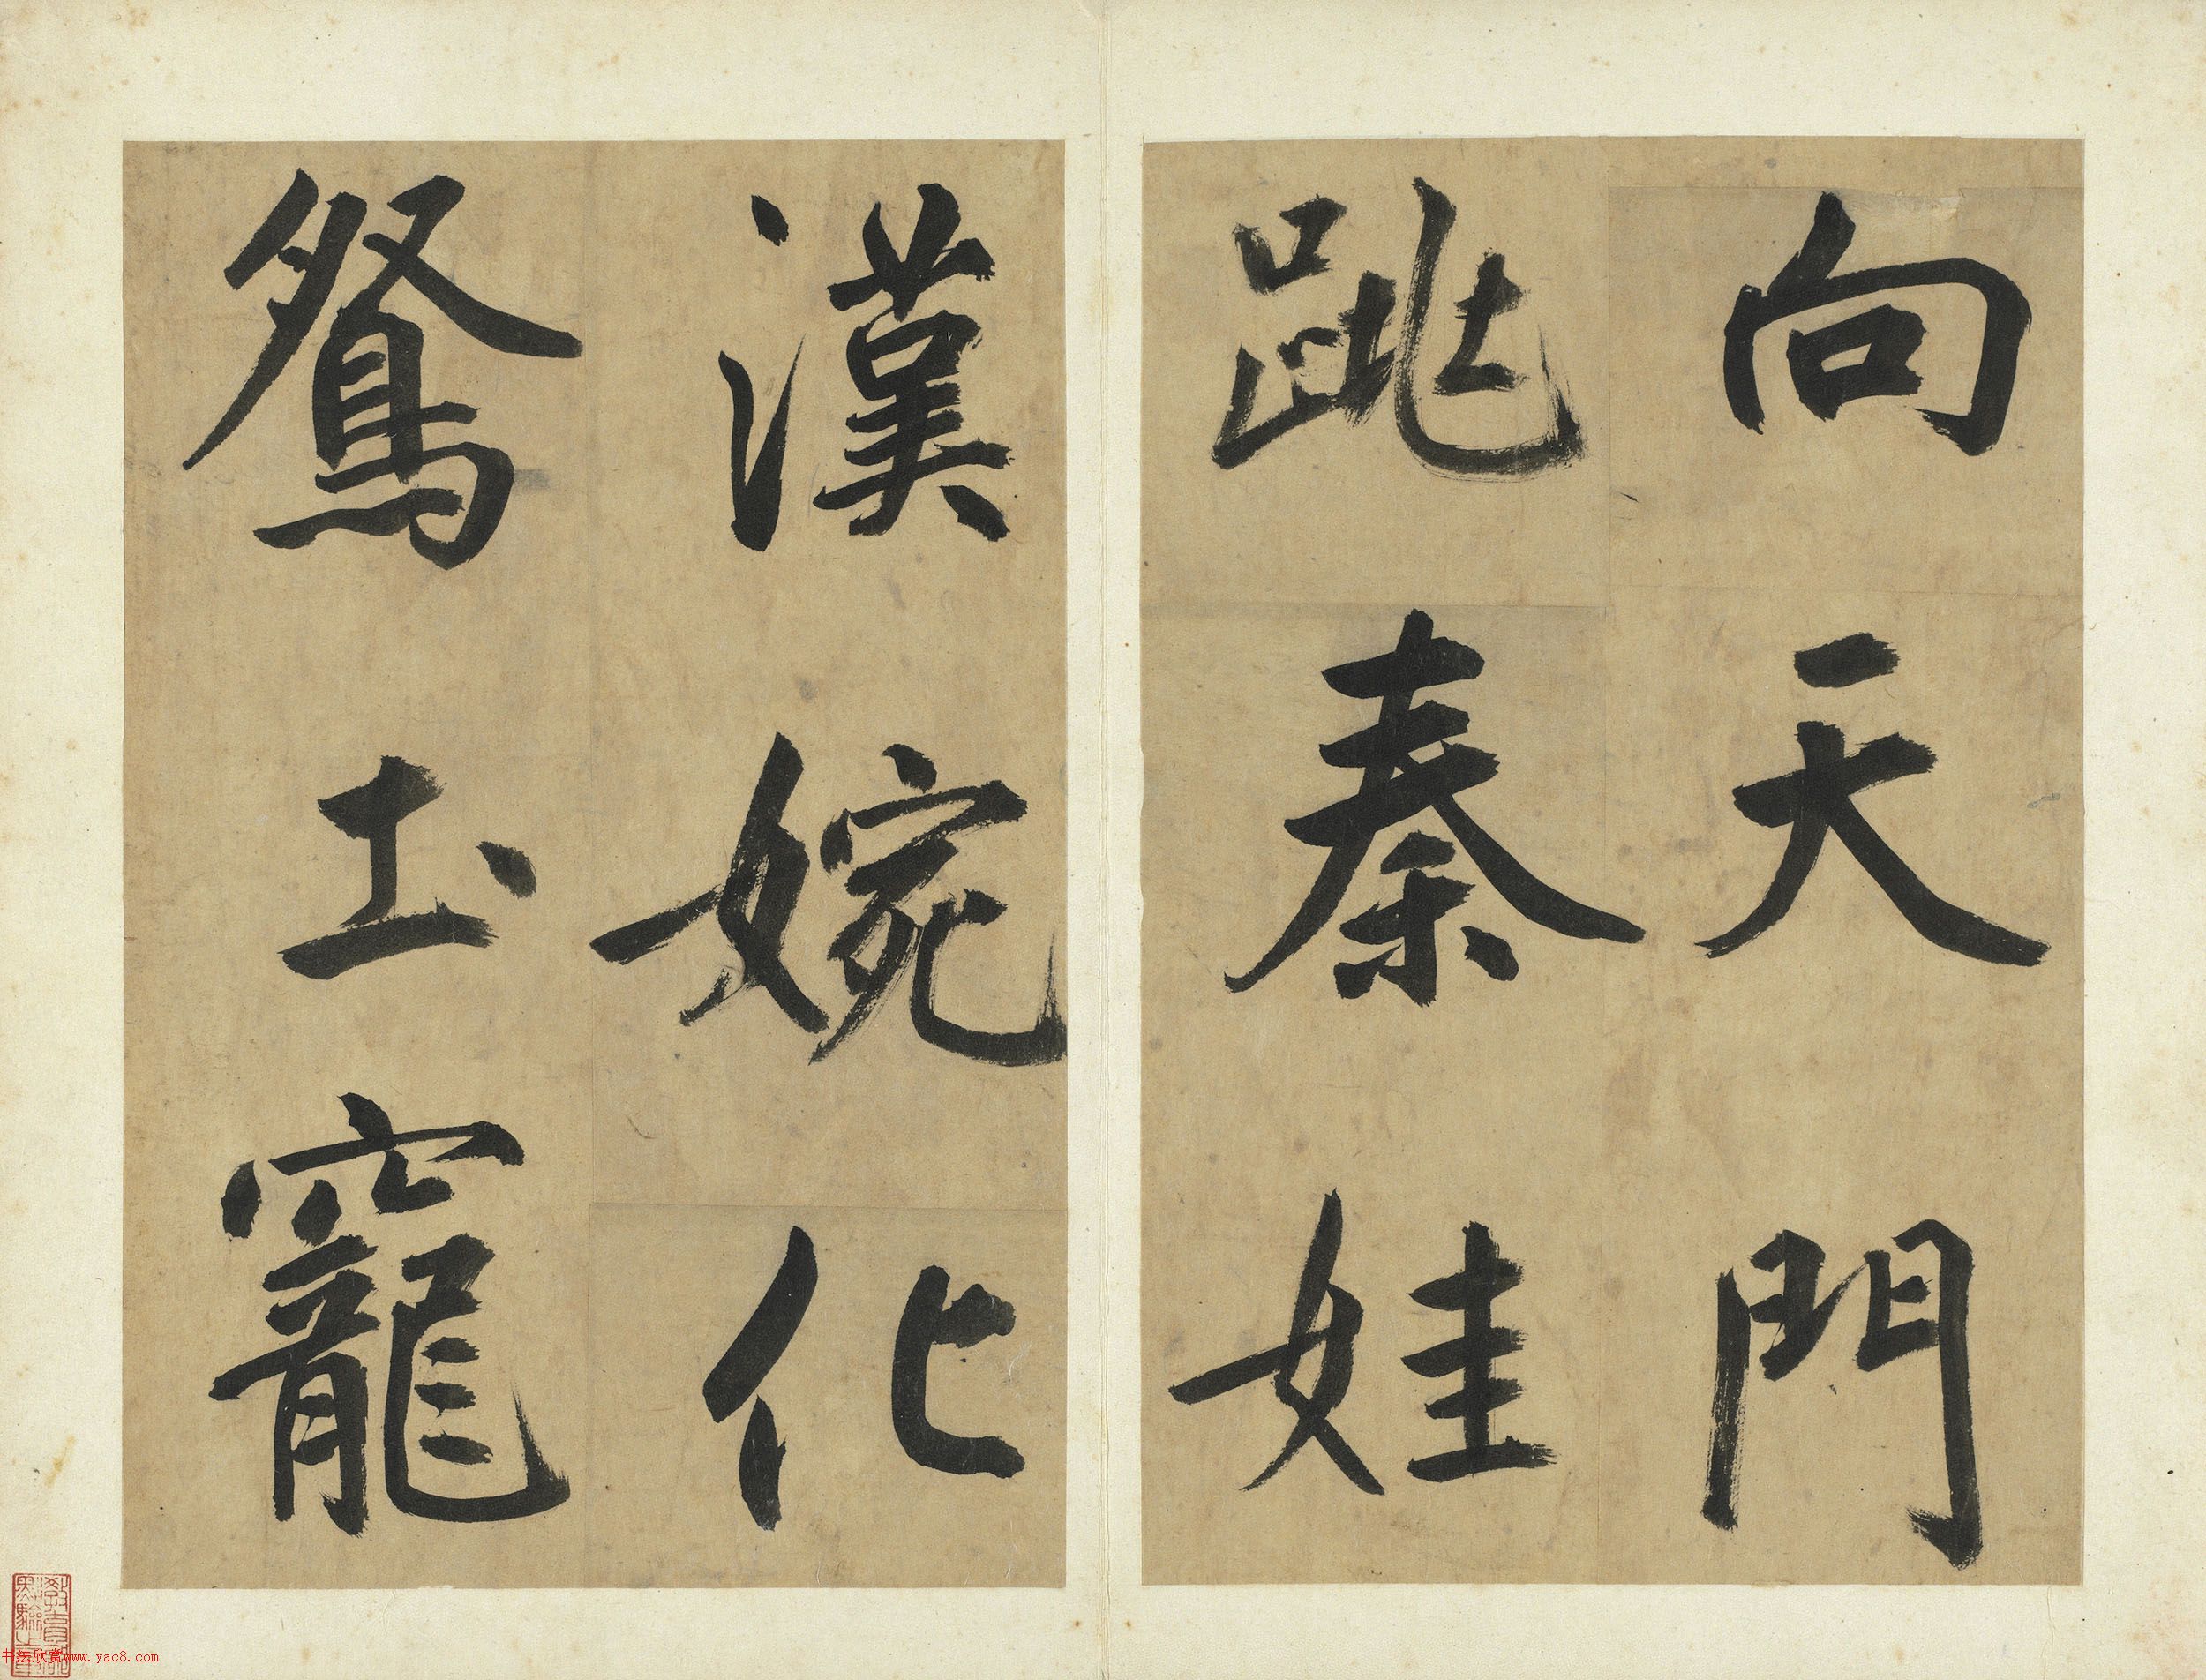 向天門
跳秦娃
漢婉化
鴛圡窹
书法欣赏www.yac8.com